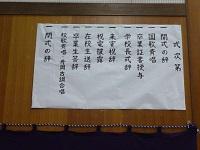 式次第
一 開式の辞
一 国歌斉唱
一 卒業証書授与
一 学校長式辞
一 来賓祝辞
一 祝電披露
一 在校生送辞
一 卒業生答辞
校歌斉唱
一 閉式の辞